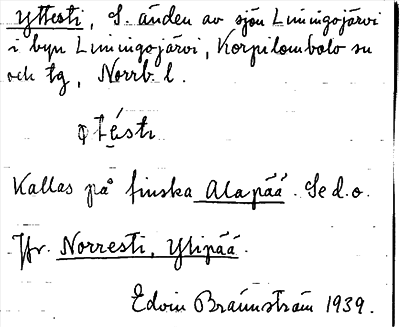 Yttesti, S. änden av sjön Liningojärvi
i byn Liningojärvi, Korpilombolo sn
och tg, Norrb. l.
Kallas på finska Alapää. Se d.o.
Jfr. Norresti, Ylipää.
Edvin Brännström 1939.